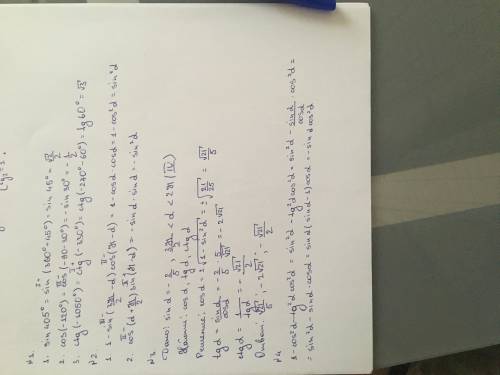 №1
1. sin 405° = sin (360°+45°) = sin 45° = √2/2
2. cos(-120°) = cos(-90-30°) = -sin 30° = -1/2
3. ctg(-1050°) = ctg(-330°) = ctg(-270°-60°) = tg 60° = √3
№2
1. 1 - sin(3π/2 - α) cos(π - α) = 1 - cosα · cosα = 1 - cos²α = sin²α
2. cos(α + π/2) sin(π - α) = - sinα · sinα = - sin²α
№3
Дано: sinα = -2/5, 3π/2 < α < 2π (IV)
Найти: cosα, tgα, ctgα
Решение: cosα = ±√(1 - sin²α) = ±√(21/25) = √21/5
tgα = sinα/cosα = -2/5 · 5/√21 = -2√21
ctgα = 1/tgα = -√21/2
Ответ: √21/5; -2√21; -√21/2
№4
1 - cos²α - tg²α cos²α = sin²α - tg²α cos²α = sin²α - sinα/cosα · cos²α =
= sin²α - sinα · cosα = sinα (sinα - 1) cosα = - sinα cos²α